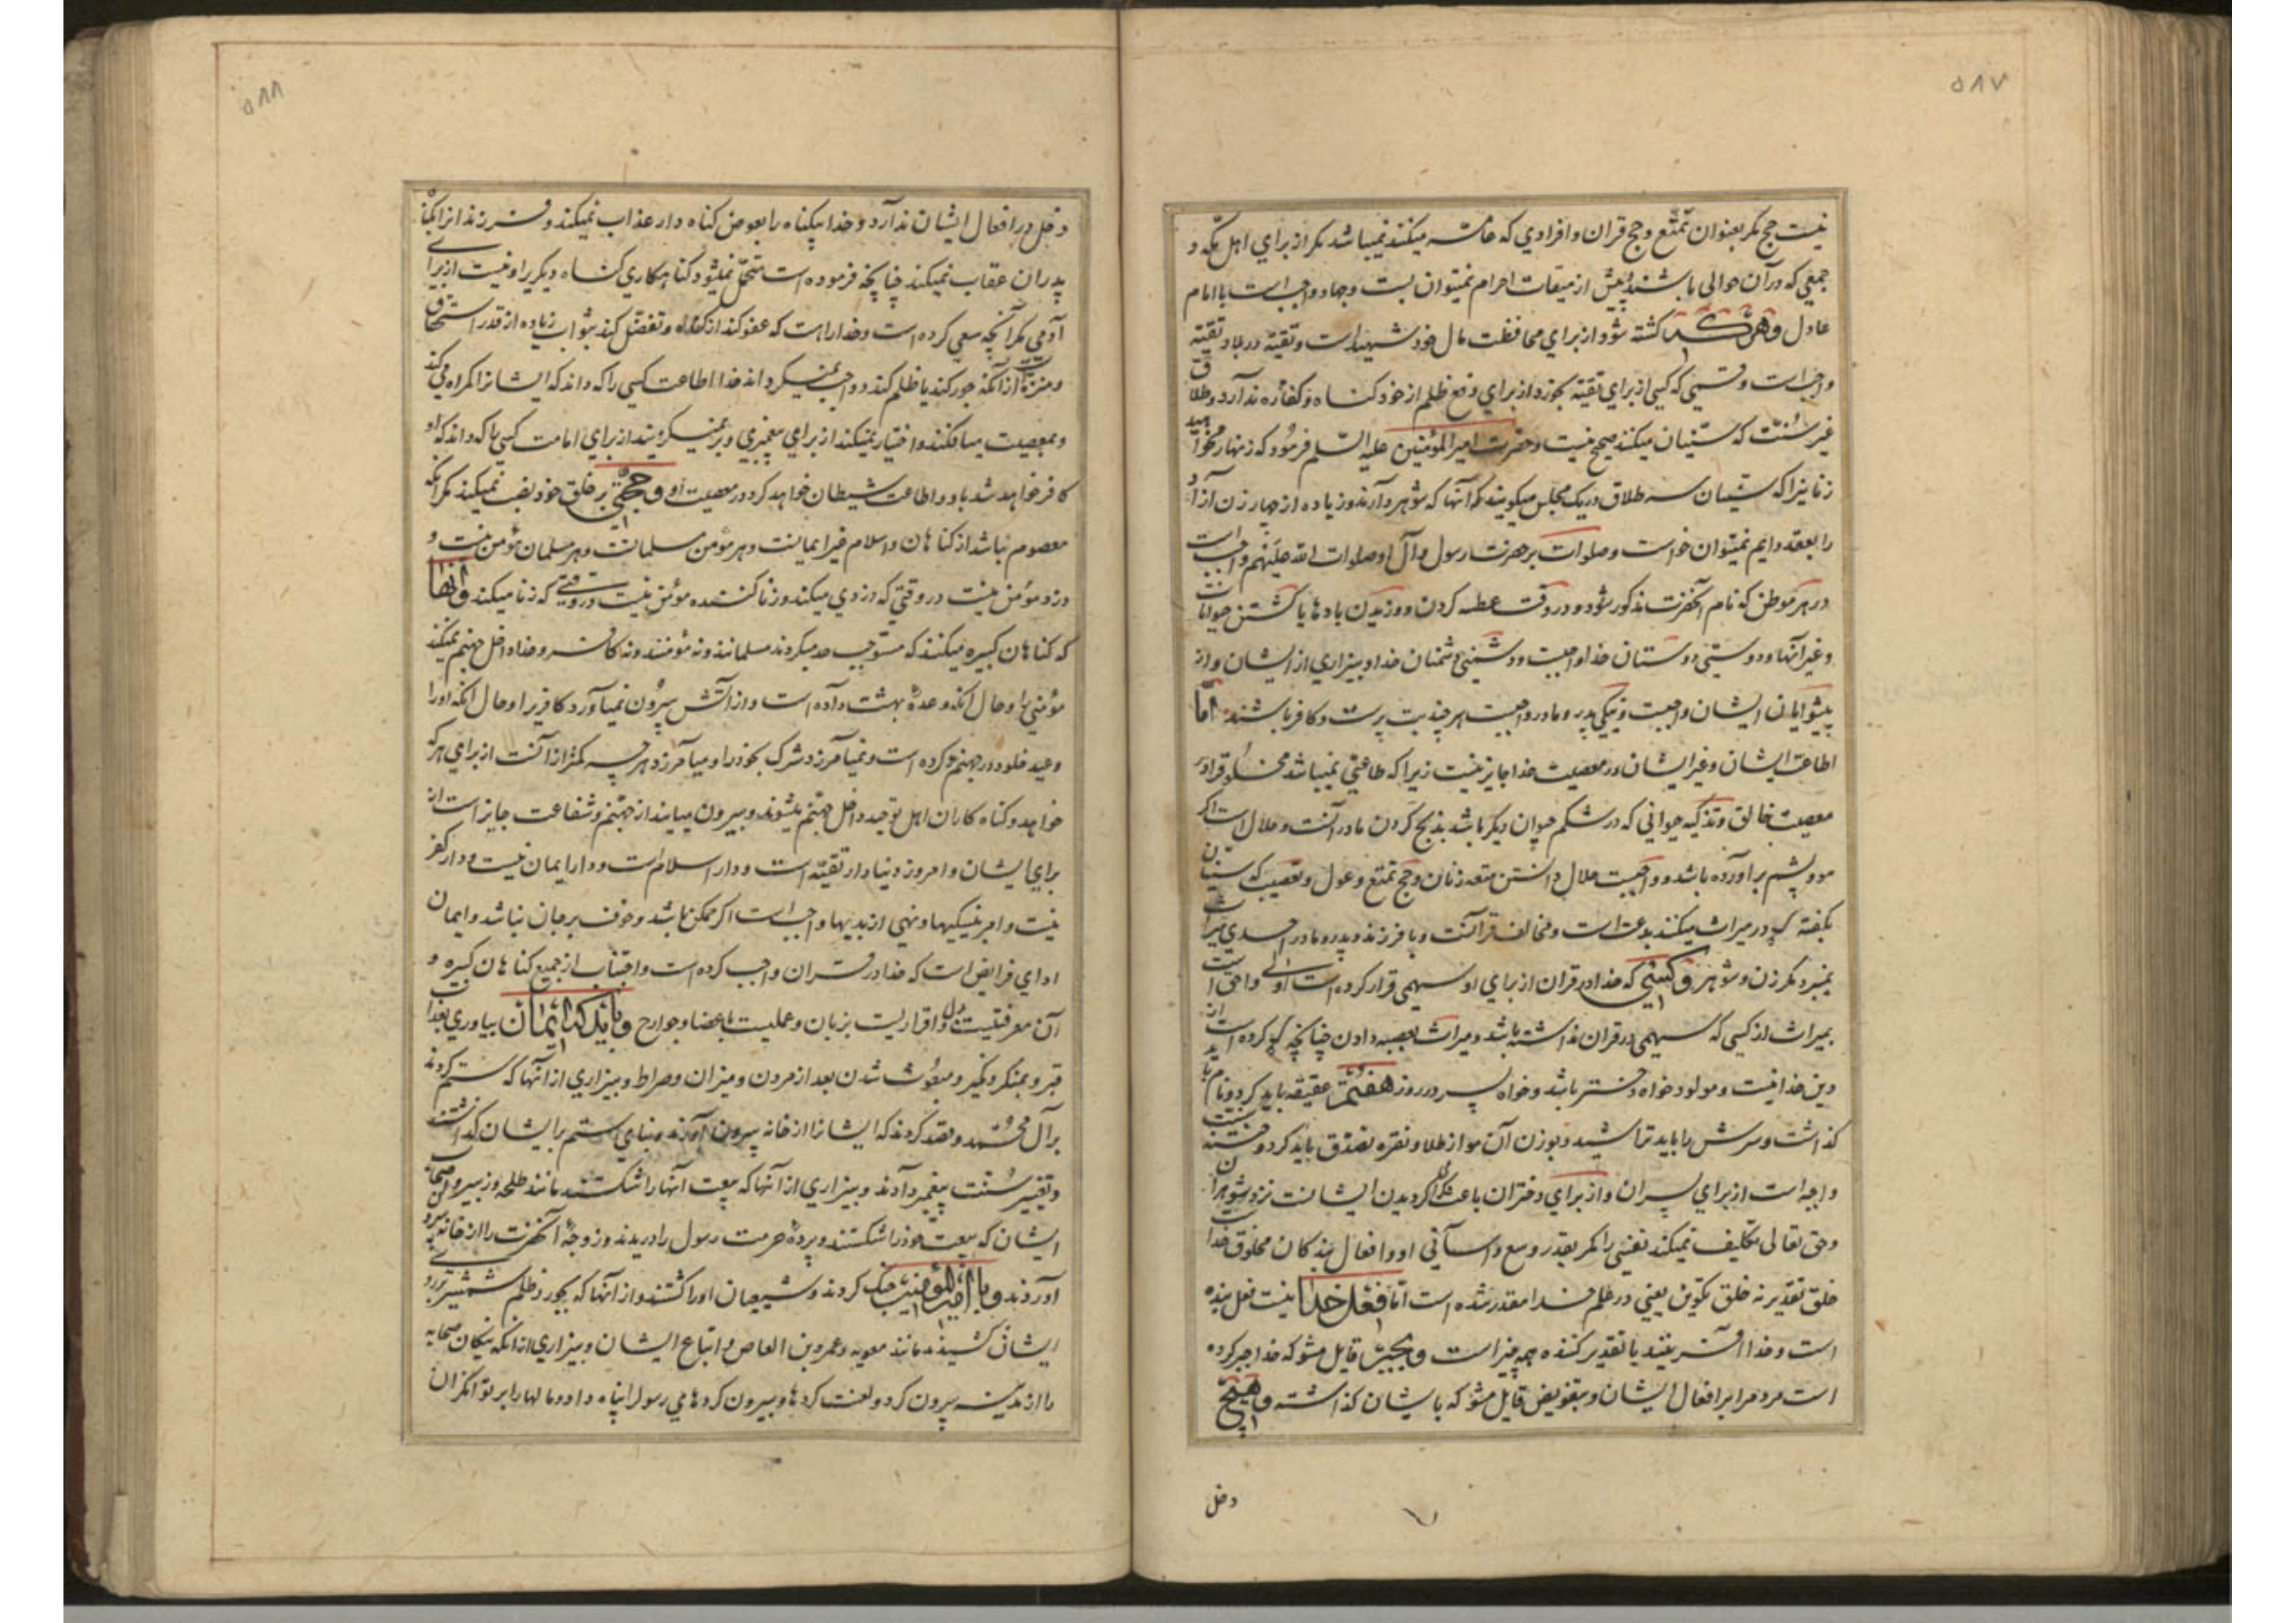 ۵۸۷
نیست حج مکر بعنوان تمتّع و حج قران و افرادي که عامّه میکنند نمیباشد مکر از براي اهل مکّه و
جمعي که در آن حوالي باشند و پیش از میقات احرام نمیتوان بست و جهاد واجبست با امام
عادل و هر که کشته شود از براي محافظت مال خود شهیدست و تقیّه در بلاد تقیّه
واجبست و قسمي که کسي از براي تقیّه بخورد از براي دفع ظلم از خود کناه و کفّاره ندارد و طلاق
غیر سنّت که سنّیان میکنند صحیح نیست و حضرت امیرالمؤمنین علیه السّلم فرمود که زنهار مخواهید
زنانیرا که سنّیان سه طلاق در یک مجلس میکویند که آنها که شوهر دارند و زیاده از چهار زن آزاد
را بعقد دایم نمیتوان خواست و صلوات بر حضرت رسول و آل او صلوات الله علیهم واجبست
در هر موطن که نام آنحضرت مذکور شود و در وقت عطسه کردن و وزیدن بادها یا کشتن حیوانات
و غیر آنها و دوستي دوستان خدا واجبست و دشمني دشمنان خدا و بیزاري از ایشان و از
پیشوایان ایشان واجبست و نیکي پدر و مادر واجبست هر چند بت پرست و کافر باشند امّا
اطاعت ایشان و غیر ایشان در معصیت خدا جایز نیست زیرا که طاعتي نمیباشد مخلوقرا در
معصیت خالق و تذکیه حیواني که در شکم حیوان دیکر باشد بذبح کردن مادر آنست و حلال است اکر
مو و پشم برآورده باشد و واجبست حلال دانستن متعه زنان و حج تمتّع و عول و تعصیب که سنّیان
بکفته در میراث میکنند بدعت است و مخالف قرآنست و با فرزند و پدر و مادر احدي میراث
نمیبرد مکر زن و شوهر و کسي که خدا در قران از براي او سهمي قرار کرده است اولي و احقّ است
بمیراث از کسي که سهمي در قران نداشته باشد و میراث بعصبه دادن چنانچه کرده اند از
دین خدا نیست و مولود خواه دختر باشد و خواه پسر در روز هفتم عقیقه باید کرد و نام باید
کذاشت و سرش را باید تراشید و بوزن آن مو از طلا و نقره تصدّق باید کرد و ختنه سنّت
واجبه است از براي پسران و از براي دختران باعث کردیدن ایشانست نزد شوهران
و حق تعالي تکلیف نمیکند نفسي را مکر بقدر وسع و آساني او و افعال بندکان مخلوق خداست
خلق تقدیر نه خلق تکوین یعني در علم خدا مقدر شده است امّا فعل خدا نیست فعل بنده
است و خدا آفریننده یا تقدیر کننده همه چیز است و بجبر قایل مشو که خدا جبر کرده
است مردمرا بر افعال ایشان و بتفویض قایل مشو که با یشان کذاشته و هیچ
دخل
۵۸۸
دخل در افعال ایشان ندارد و خدا بیکناه را بعوض کناه دار عذاب نمیکند و فرزندانرا بکناه
پدران عقاب نمیکند چنانچه فرموده است متحمّل نمیشود کناهکاري کناه دیکریرا و نیست از براي
آدمي مکر آنچه سعي کرده است و خدا راست که عفو کند از کناه و تفضّل کند بثواب زیاده از قدر استحقاق
و منزّه است از آنکه جور کند یا ظلم کند و واجب نمیکرداند خدا اطاعت کسي را که داند که ایشانرا کمراه میکند
و بمعصیت میافکند و اختیار نمیکند از براي پیغمبري و بر نمیکزیند از براي امامت کسي را که داند که او
کافر خواهد شد باو و اطاعت شیطان خواهد کرد در معصیت او و حجّتي بر خلق خود نصب نمیکند مکر آنکه
معصوم باشد از کناهان و اسلام غیر ایمانست و هر مؤمن مسلمانست و هر مسلمان مؤمن نیست و
دزد مؤمن نیست در وقتي که دزدي میکند و زنا کننده مؤمن نیست در وقتي که زنا میکند و آنها
که کناهان کبیره میکنند که مستوجب حد میکردند مسلمانند و نه مؤمنند و نه کافر و خدا داخل جهنّم نمیکند
مؤمني را و حال آنکه وعدهٔ بهشت داده است و از آتش بیرون نمیآورد کافریرا و حال آنکه او را
وعید خلود در جهنّم کرده است و نمیآمرزد شرک بخود را و میآمرزد هر چه کمتر از آنست از براي هر که
خواهد و کناه کاران اهل توحید داخل جهنّم میشوند و بیرون میایند از جهنّم و شفاعت جایز است از
براي ایشان و امروز دنیا دار تقیّه است و دار اسلام است و دار ایمان نیست و دار کفر
نیست و امر بنیکیها و نهي از بدیها واجبست اکر ممکن باشد و خوف بر جان نباشد و ایمان
اداي فرایض است که خدا در قران واجب کرده است و اجتناب از جمیع کناهان کبیره و
آن معرفتیست بدل و اقراریست بزبان و عملیست باعضا و جوارح و باید که ایمان بیاوري بعذاب
قبر و بمنکر و نکیر و مبعوث شدن بعد از مردن و میزان و صراط و بیزاري از آنها که ستم کردند
بر آل محمّد و قصد کردند که ایشانرا از خانه بیرون آورند و بناي ستم بر ایشان کذاشتند
و تغییر سنّت پیغمبر دادند و بیزاري از آنها که بیعت آنها را شکستند مانند طلحه و زبیر و اصحاب
ایشان که بیعت خود را شکستند و پردهٔ حرمت رسول را دریدند و زوجهٔ آنحضرت را از خانه بیرون
آوردند و با امیرالمؤمنین جنک کردند و شیعیان او را کشتند و از آنها که بجور و ظلم شمشیر بر روي
ایشان کشیدند مانند معویه و عمرو بن العاص و اتباع ایشان و بیزاري از آنکه نیکان صحابه
را از مدینه بیرون کرد و لعنت کردها و بیرون کردهاي رسول را پناه داد و مالها را بر توانکران